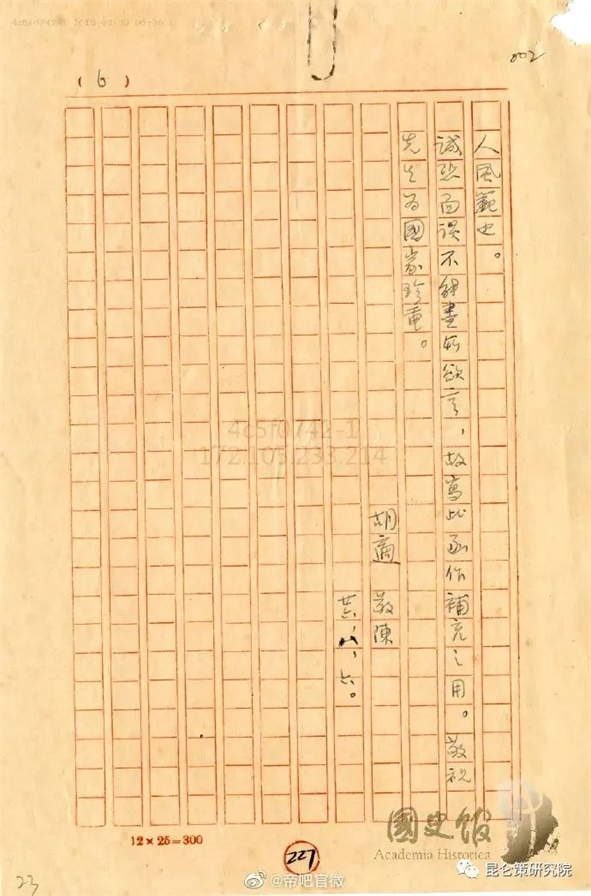 002
(6)
人風範也。
誠恐面談不能盡所欲言,故寫此函作補充之用。敬祝
先生為國家珍重。
胡適 敬陳
廿六,八,六。
4c5f0742-1
172.105.233.214
12×25=300
227
23
國史館
Academia Historica
@帝吧官微
昆仑策研究院